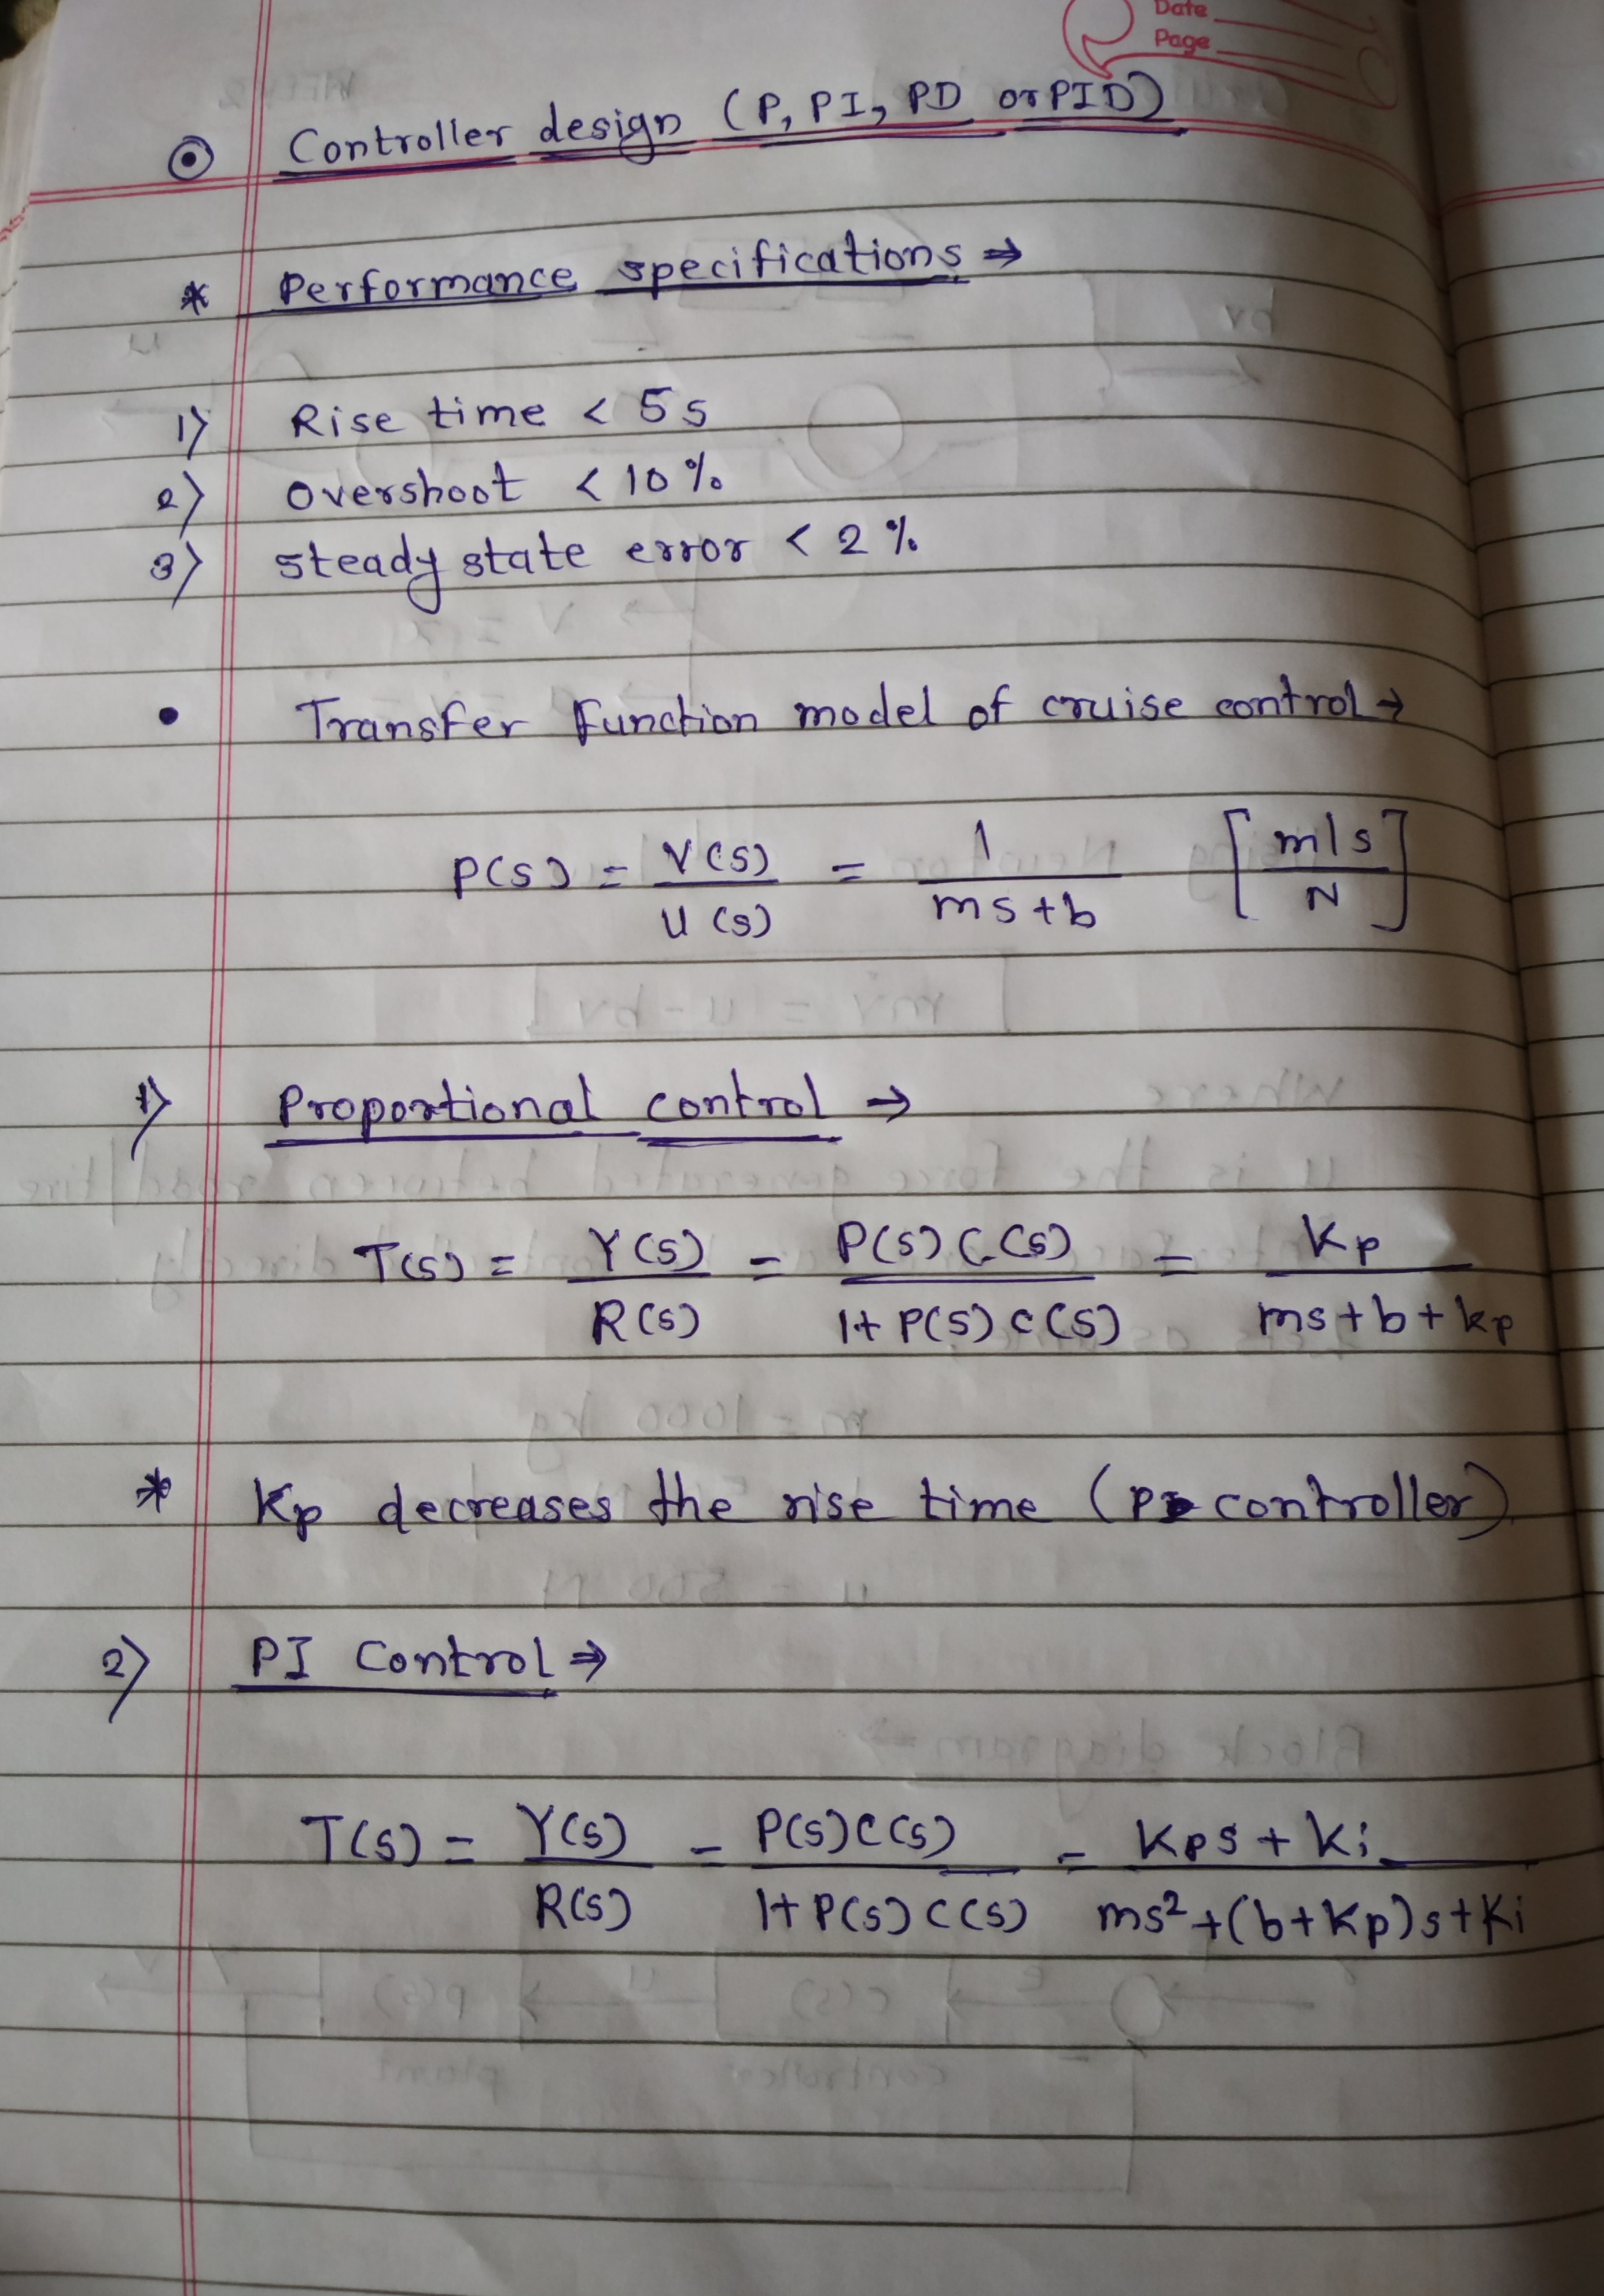 Date
Page
Controller design (P, PI, PD or PID)
* Performance specifications ⇒
1) Rise time < 5s
2) Overshoot < 10%
3) steady state error < 2%
• Transfer Function model of cruise control →
P(s) = V(s)/U(s) = 1/(ms+b) [m/s / N]
1) Proportional control →
T(s) = Y(s)/R(s) = P(s)C(s)/(1+P(s)C(s)) = Kp/(ms+b+kp)
* Kp decreases the rise time (P controller)
2) PI Control ⇒
T(s) = Y(s)/R(s) = P(s)C(s)/(1+P(s)C(s)) = Kps+Ki/(ms²+(b+Kp)s+Ki)